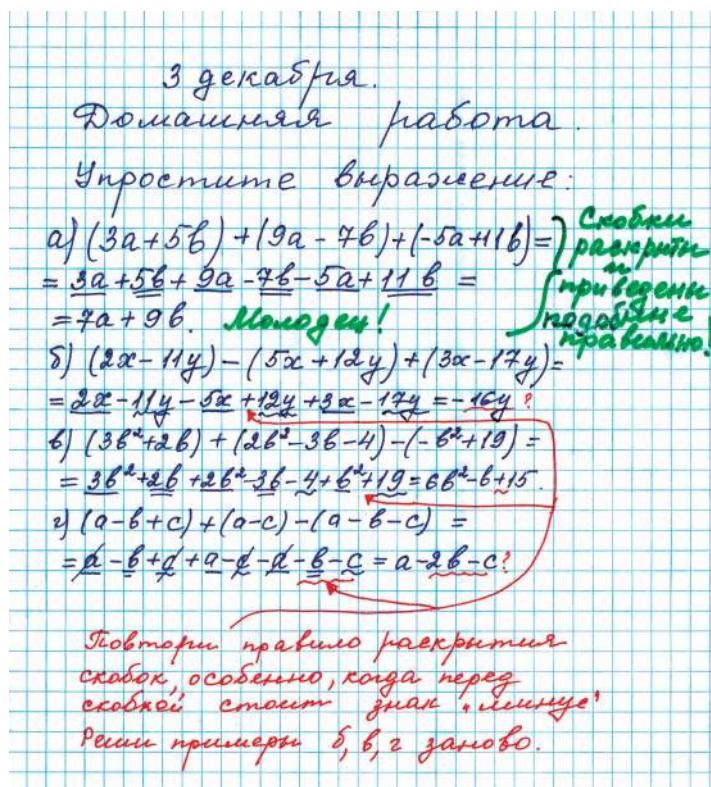 3 декабря.
Домашняя работа.
Упростите выражение:
а) (3а+5в)+(9а-7в)+(-5а+11в)=
= 3а+5в+9а-7в-5а+11в =
=7а+9в. Молодец!
Скобки
раскрыты
и
приведены
подобные
правильно!
б) (2х-11у)-(5х+12у)+(3х-17у)=
= 2х-11у-5х+12у+3х-17у=-16у?
в) (3в²+2в)+(2в²-3в-4)-(-в²+19)=
= 3в²+2в+2в²-3в-4+в²+19=6в²-в+15.
г) (а-в+с)+(а-с)-(а-в-с) =
=а-в+с+а-с-а-в-с=а-2в-с?
Повтори правило раскрытия
скобок, особенно, когда перед
скобкой стоит знак „минус“
Реши примеры б, в, г заново.